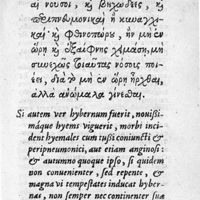 αἱ νοῦσοι, κ̀ βηχώδεες, κ̀
κ̀ φθινοπώρȣ, ἢν μὴ ἐν
ὥρῃ κ̀ ἐξαίφνης χειμάσῃ, μὴ
συνεχῶς τοιαύτας νόσȣς ποι-
έει, διὰ τὸ μὴ ἐν ὥρῃ ἦρχθαι,
ἀλλὰ ἀνώμαλα γίνεται.
Si autem ver hybernum fuerit, nouißi-
máque hyems viguerit, morbi incidunt
hyemales cum tußi coniuncti &
peripneumonici, aut etiam anginosi:
& autumno quoque ipso, si quidem
non conuenienter, sed repente, &
magna vi tempestates inducat hyber-
nas, non semper nec continenter sua